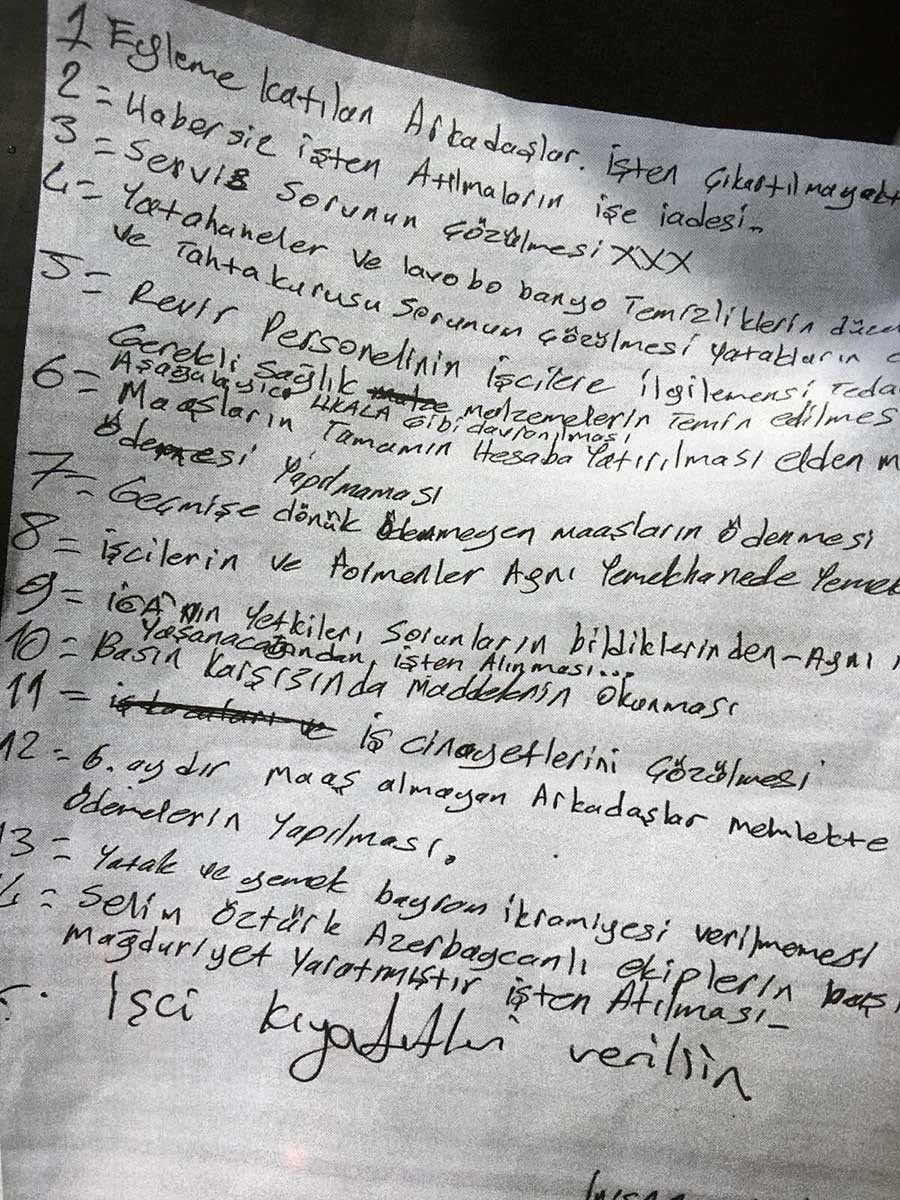 1 Eyleme katılan Arkadaşlar. işten Çıkartılmayakt
2 = Habersiz işten Atılmaların işe iadesi.
3 = Servis sorunun çözülmesi XXX
4 = Yatahaneler ve lavobo banyo Temizliklerin düze
ve Tahtakurusu sorunun çözülmesi yatakların
5 = Revir Personelinin işcilere ilgilemensi Teda
Gerekli Sağlık malzemelerin Temin edilmes
Aşağalayıcı UKALA Gibi davronılması
6 = Maaşların Tamamın Hesaba Yatırılması elden m
Ödemesi Yapılmaması
7 = Geçmişe dönük ödenmeyen maaşların ödenmesi
8 = işcilerin ve formenler Aynı Yemekhanede Yemek
9 = iGA'nın Yetkileri Sorunların bildiklerinden - Aynı
Yaşanacağından, işten Alınması...
10 = Basın karşısında maddelenin okunması
11 = iş cinayetlerini çözülmesi
12 = 6. aydır maaş almayan Arkadaşlar memlekte
Ödemelerin Yapılması.
13 = Yatak ve yemek bayram ikramiyesi verilmemesi
4 = Selim Öztürk Azerbaycanlı ekiplerin baş
mağduriyet Yaratmıştır işten Atılması -
İşci kıyafetleri verilsin